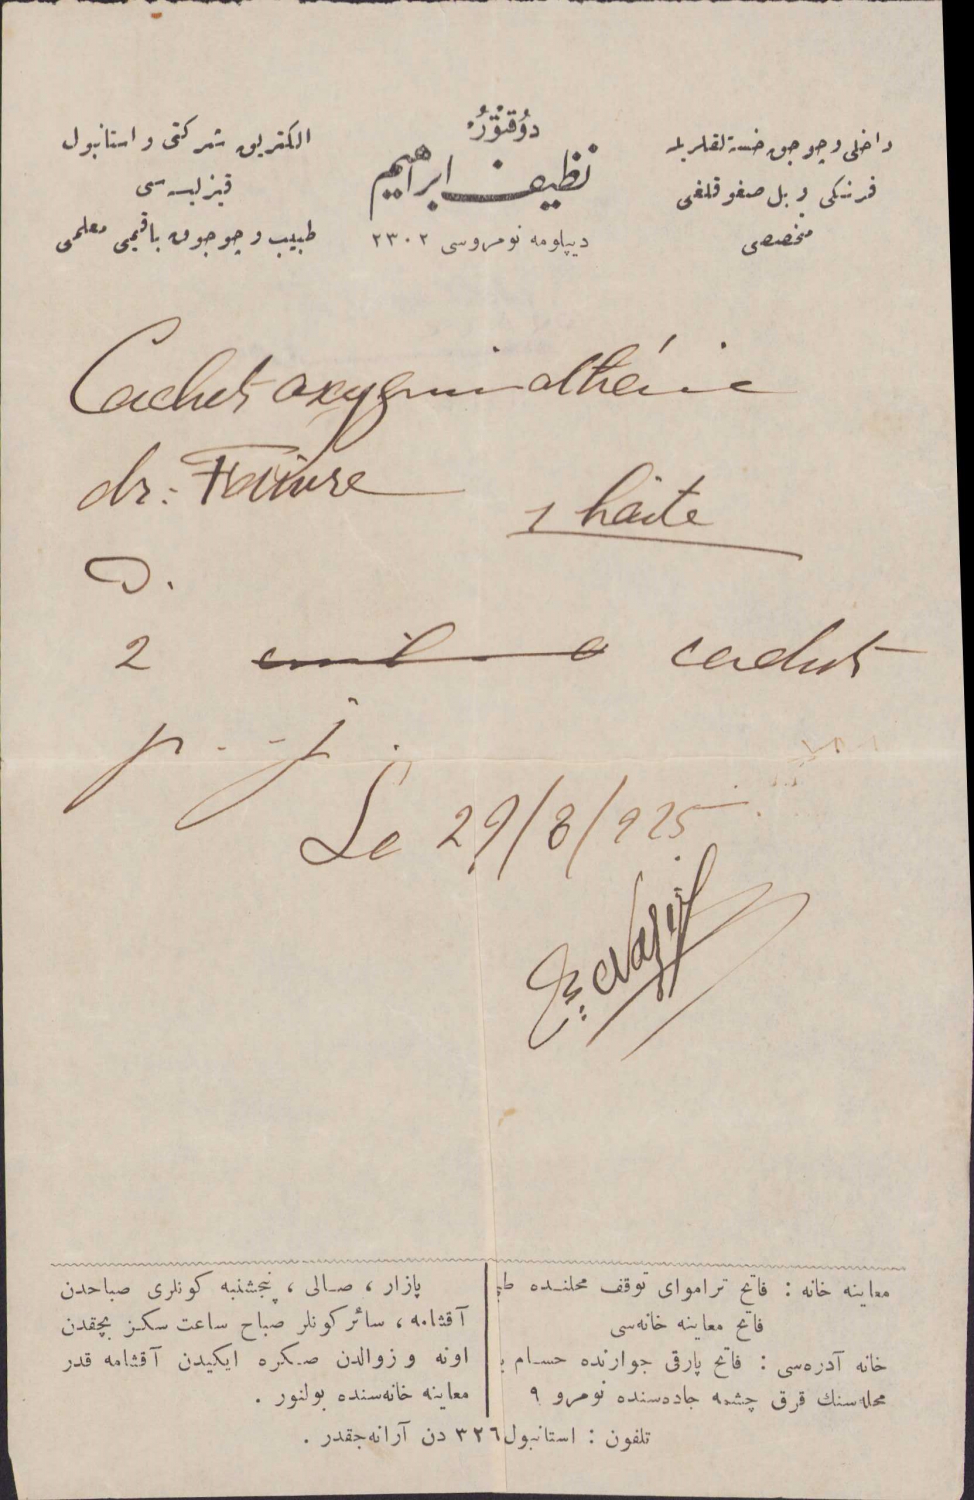 داخلی و چوجوق خسته لقلریله
فرنگی و بل صغوقلغی
متخصصی
دوُقتوُر
نظیف ابراهیم
دیپلومه نومروسی ٢٣٠٢
الکتریق شرکتی و استانبول
قیز لیسه‌سی
طبیب و چوجوق باقیمی معلمی
Cachets
dr: Faivre
1 boite
D.
2 cachets
p. j.
Le 29/8/925
Nazif
معاینه خانه : فاتح تراموای توقف محلنده
فاتح معاینه خانه‌سی
خانه آدره‌سی : فاتح پارقی جوارنده حسام
محله‌سنك قرق چشمه جاده‌سنده نومرو ٩
پازار ، صالی ، پنجشنبه کونلری صباحدن
آقشامه ، سائر کونلر صباح ساعت سکز بچقدن
اونه و زوالدن صکره ایکیدن آقشامه قدر
معاینه خانه‌سنده بولنور .
تلفون : استانبول ٣٢٦ دن آرانه‌جقدر .